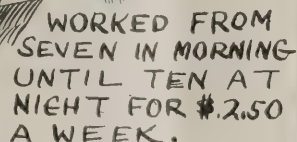 WORKED FROM
SEVEN IN MORNING
UNTIL TEN AT
NIGHT FOR $.2.50
A WEEK.